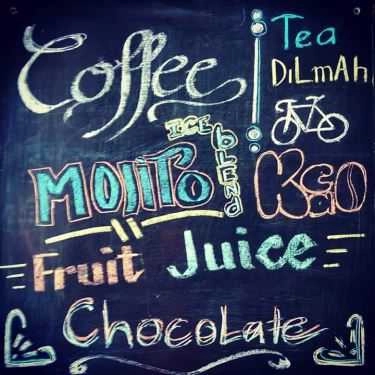 Coffee
Tea
DiLmAh
ICE
blEND
MOJITO
Fruit Juice
ChocoLate